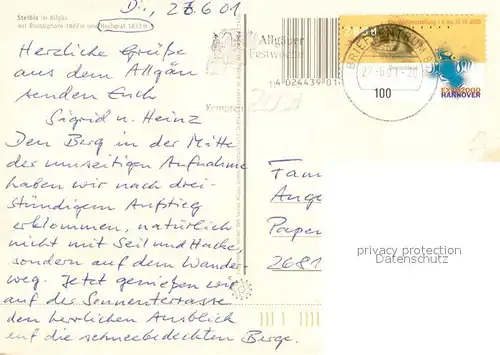 Di., 26.6.01
Steibis im Allgäu
mit Rindalphorn 1822 m und Hochgrat 1833 m
Herzliche Grüße
aus dem Allgäu
senden Euch
Sigrid u. Heinz
Den Berg in der Mitte
der umseitigen Aufnahme
haben wir nach drei-
stündigem Aufstieg
erklommen, natürlich
nicht mit Seil und Hacke
sondern auf dem Wander-
weg. Jetzt genießen wir
auf der Sonnenterrasse
den herrlichen Ausblick
auf die schneebedeckten Berge.
Allgäuer
Festwoche
Kempten
4 024439 01
BRIEFZENTRUM
27.-6.01-20
100
EXPO2000
HANNOVER
Fam
Ange
Paper
2681
privacy protection
Datenschutz